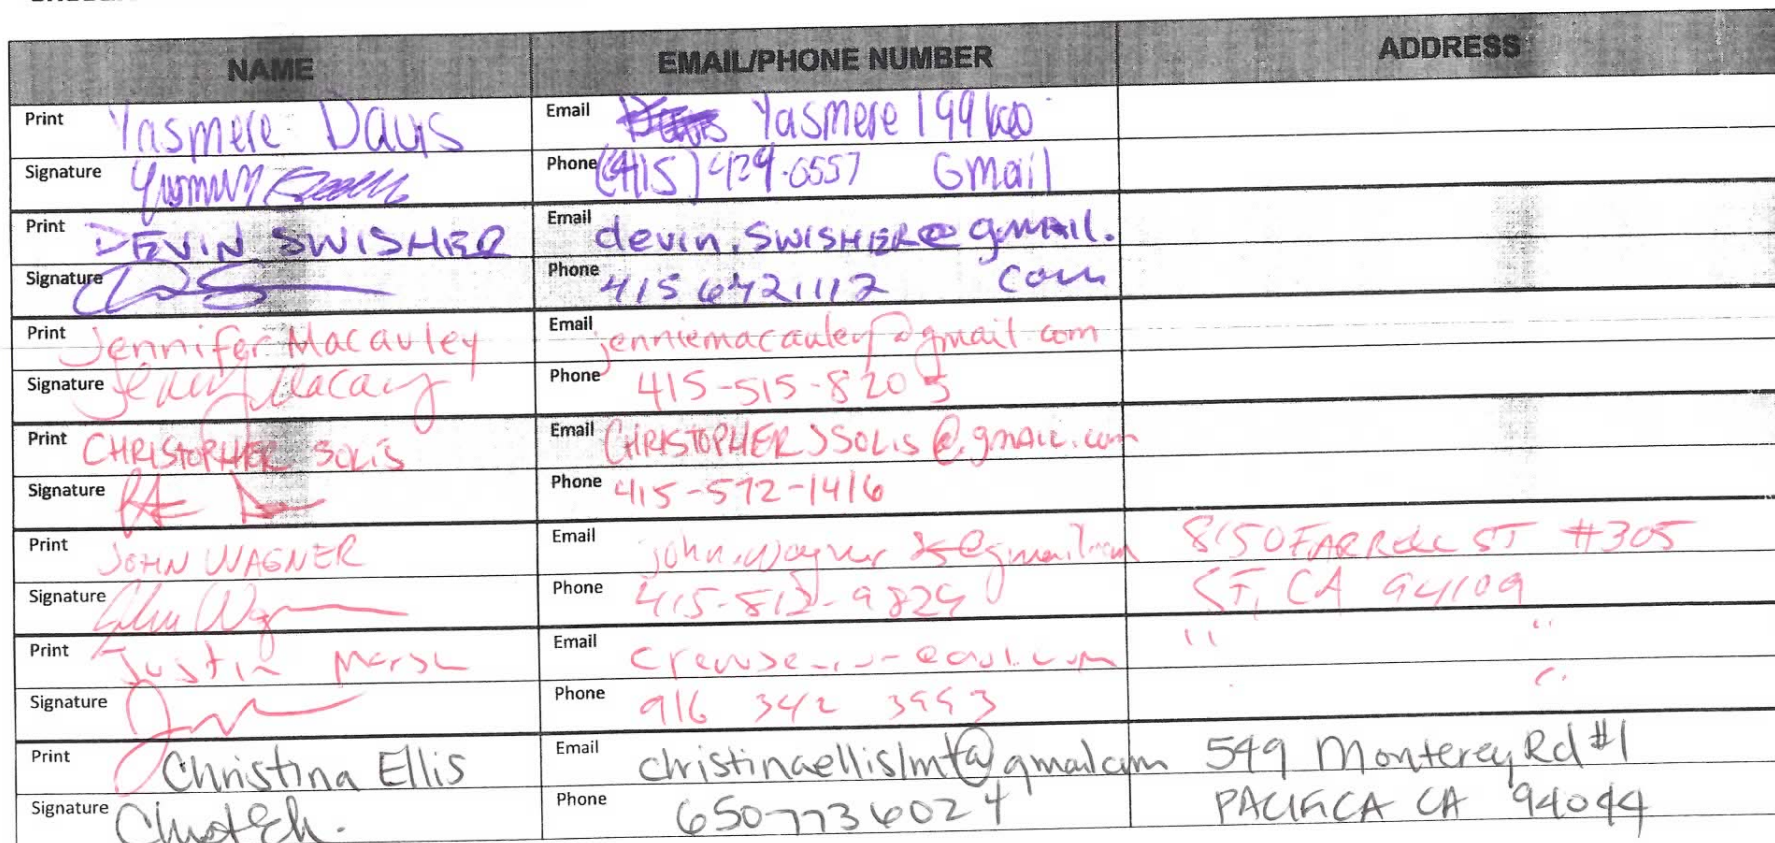 NAME EMAIL/PHONE NUMBER ADDRESS
Print Yasmere Davis Email Yasmere199
Signature Phone (415) 424-0557 Gmail
Print DEVIN SWISHER Email devin.SWISHER@gmail.
Signature Phone 415 6721112 com
Print Jennifer Macauley Email jenniemacauley@gmail.com
Signature Phone 415-515-8205
Print CHRISTOPHER SOLIS Email CHRISTOPHERJSOLIS@gmail.com
Signature Phone 415-572-1416
Print JOHN WAGNER Email 815 OFARRELL ST #305
Signature Phone SF, CA 94109
Print Justin Marsh Email " "
Signature Phone 916 342 "
Print Christina Ellis Email christinaellislmt@gmail.com 549 Monterey Rd #1
Signature Phone 650-7736024 PACIFICA CA 94044